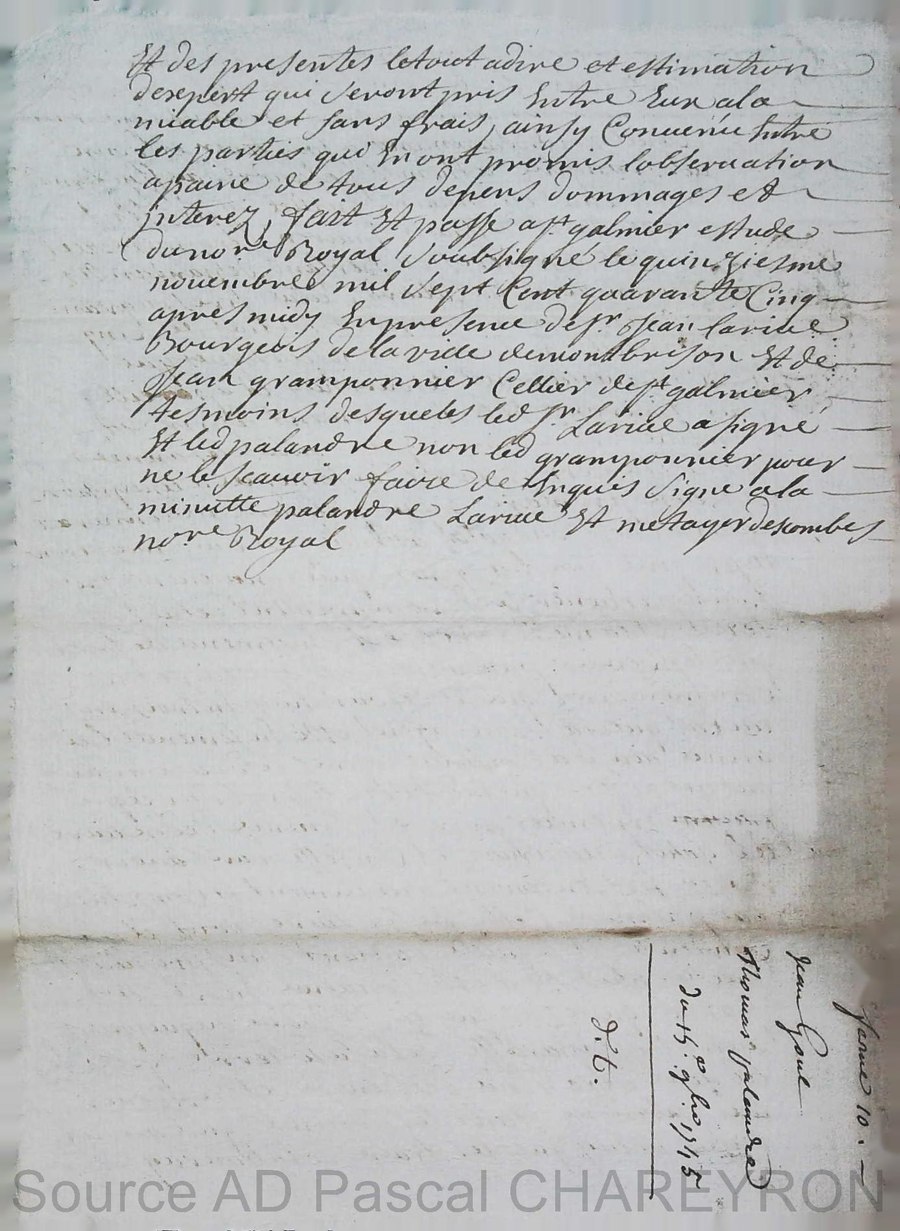 Et des presentes letout adire et estimation
dexpert qui seront pris Entre Eux ala
miable et sans frais, ainsy Conuenu Entre
les parties qui En ont promis lobseruation
apaine de tous depens dommages et
interez, fait Et passé a st galmier estude
du nore Royal soubsigné le quinziesme
nouembre mil sept Cent quarante Cinq
apres midy En presence de sr Jean Lariue
Bourgeois de la ville de montbrison Et de
Jean gramponnier Cellier de st galmier
tesmoins desquels led sr Lariue a signé
Et led palandre non led gramponnier pour
ne le scauoir faire de Enquis signé a la
minutte palandre Lariue Et metayer descombes
nore Royal
ferme 10.
Jean
Thomas palandre
du 15e 9bre 1745
d. t.
Source AD Pascal CHAREYRON